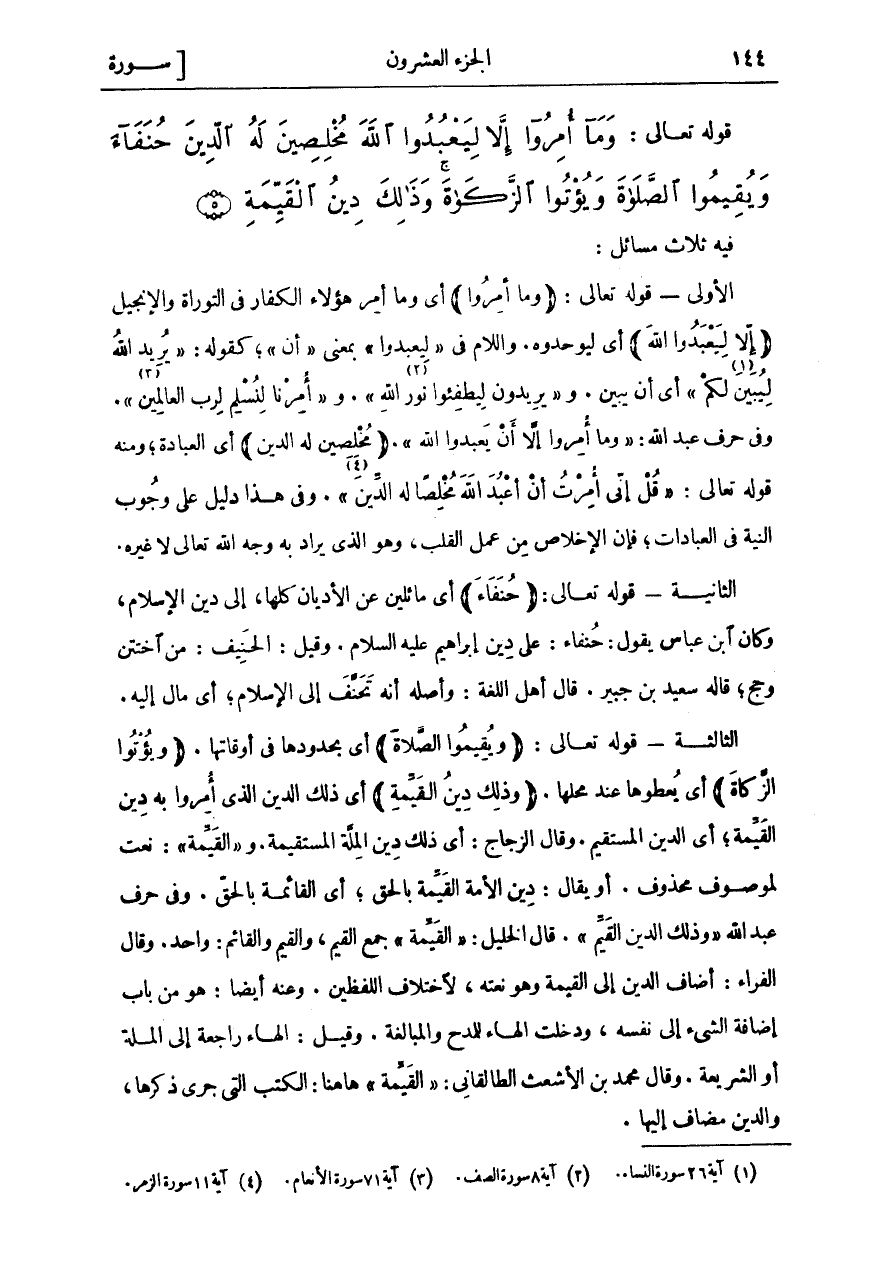 ١٤٤ الجزء العشرون [ ســـورة
قوله تعـالى : وَمَآ أُمِرُوٓا إِلَّا لِيَعْبُدُوا ٱللَّهَ مُخْلِصِينَ لَهُ ٱلدِّينَ حُنَفَآءَ
وَيُقِيمُوا ٱلصَّلَوٰةَ وَيُؤْتُوا ٱلزَّكَوٰةَ ۚ وَذَٰلِكَ دِينُ ٱلْقَيِّمَةِ ۝٥
فيه ثلاث مسائل :
الأولى — قوله تعالى : ﴿ وما أُمِرُوا ﴾ أى وما أمر هؤلاء الكفار فى التوراة والإنجيل
﴿ إِلّا لِيَعْبُدُوا اللهَ ﴾ أى ليوحدوه. واللام فى « ليعبدوا » بمعنى « أن » ؛ كقوله : « يُرِيد اللهُ
لِيُبَيِّنَ لكمْ (١) » أى أن يبين . و « يريدون لِيطفئوا نور اللهِ (٢) » . و « أُمِرْنا لِنُسْلِم لِرب العالمِين (٣) » .
وفى حرف عبد الله : « وما أُمِروا إلّا أَنْ يَعبدوا الله » . ﴿ مُخْلصين له الدين ﴾ أى العبادة ؛ ومنه
قوله تعالى : « قُلْ إنّى أُمِرْتُ أنْ أَعْبُدَ اللهَ مُخْلِصًا له الدِّينَ (٤) » . وفى هـذا دليل على وجُوب
النية فى العبادات ؛ فإن الإخلاص مِن عمل القلب، وهو الذى يراد به وجه الله تعالى لا غيره.
الثانيــة — قوله تعـالى : ﴿ حُنَفَاءَ ﴾ أى مائلين عن الأديان كلها، إلى دين الإسلام،
وكان ٱبن عباس يقول : حُنفاء : على دِين إبراهيم عليه السلام . وقيل : الحَنِيف : من ٱختتن
وحج ؛ قاله سعيد بن جبير . قال أهل اللغة : وأصله أنه تَحَنَّفَ إلى الإسلام ؛ أى مال إليه .
الثالثــة — قوله تعـالى : ﴿ ويُقِيمُوا الصَّلاةَ ﴾ أى بحدودها فى أوقاتها . ﴿ ويُؤْتُوا
الزَّكاةَ ﴾ أى يُعطوها عند محلها . ﴿ وذلِك دِينُ القَيِّمةِ ﴾ أى ذلك الدين الذى أُمِروا به دِين
القَيِّمة ؛ أى الدين المستقيم . وقال الزجاج : أى ذلك دِين المِلّة المستقيمة. و « القَيِّمة » : نعت
لموصـوف محذوف . أو يقال : دِين الأمة القَيِّمة بالحق ؛ أى القائمـة بالحقّ . وفى حرف
عبد الله « وذلك الدين القَيِّم » . قال الخليل : « القَيِّمة » جمع القيم ، والقيم والقائم : واحد. وقال
الفراء : أضاف الدين إلى القيمة وهو نعته ، لٱختلاف اللفظين . وعنه أيضا : هو من باب
إضافة الشىء إلى نفسه ، ودخلت الهـاء للمدح والمبالغة . وقيـل : الهـاء راجعة إلى المـلة
أو الشريعة . وقال محمد بن الأشعث الطالقانى : « القَيِّمة » هاهنا : الكتب التى جرى ذكرها ،
والدين مضاف إليها .
(١) آية ٢٦ سورة النساء. (٢) آية ٨ سورة الصف. (٣) آية ٧١ سورة الأنعام. (٤) آية ١١ سورة الزمر.